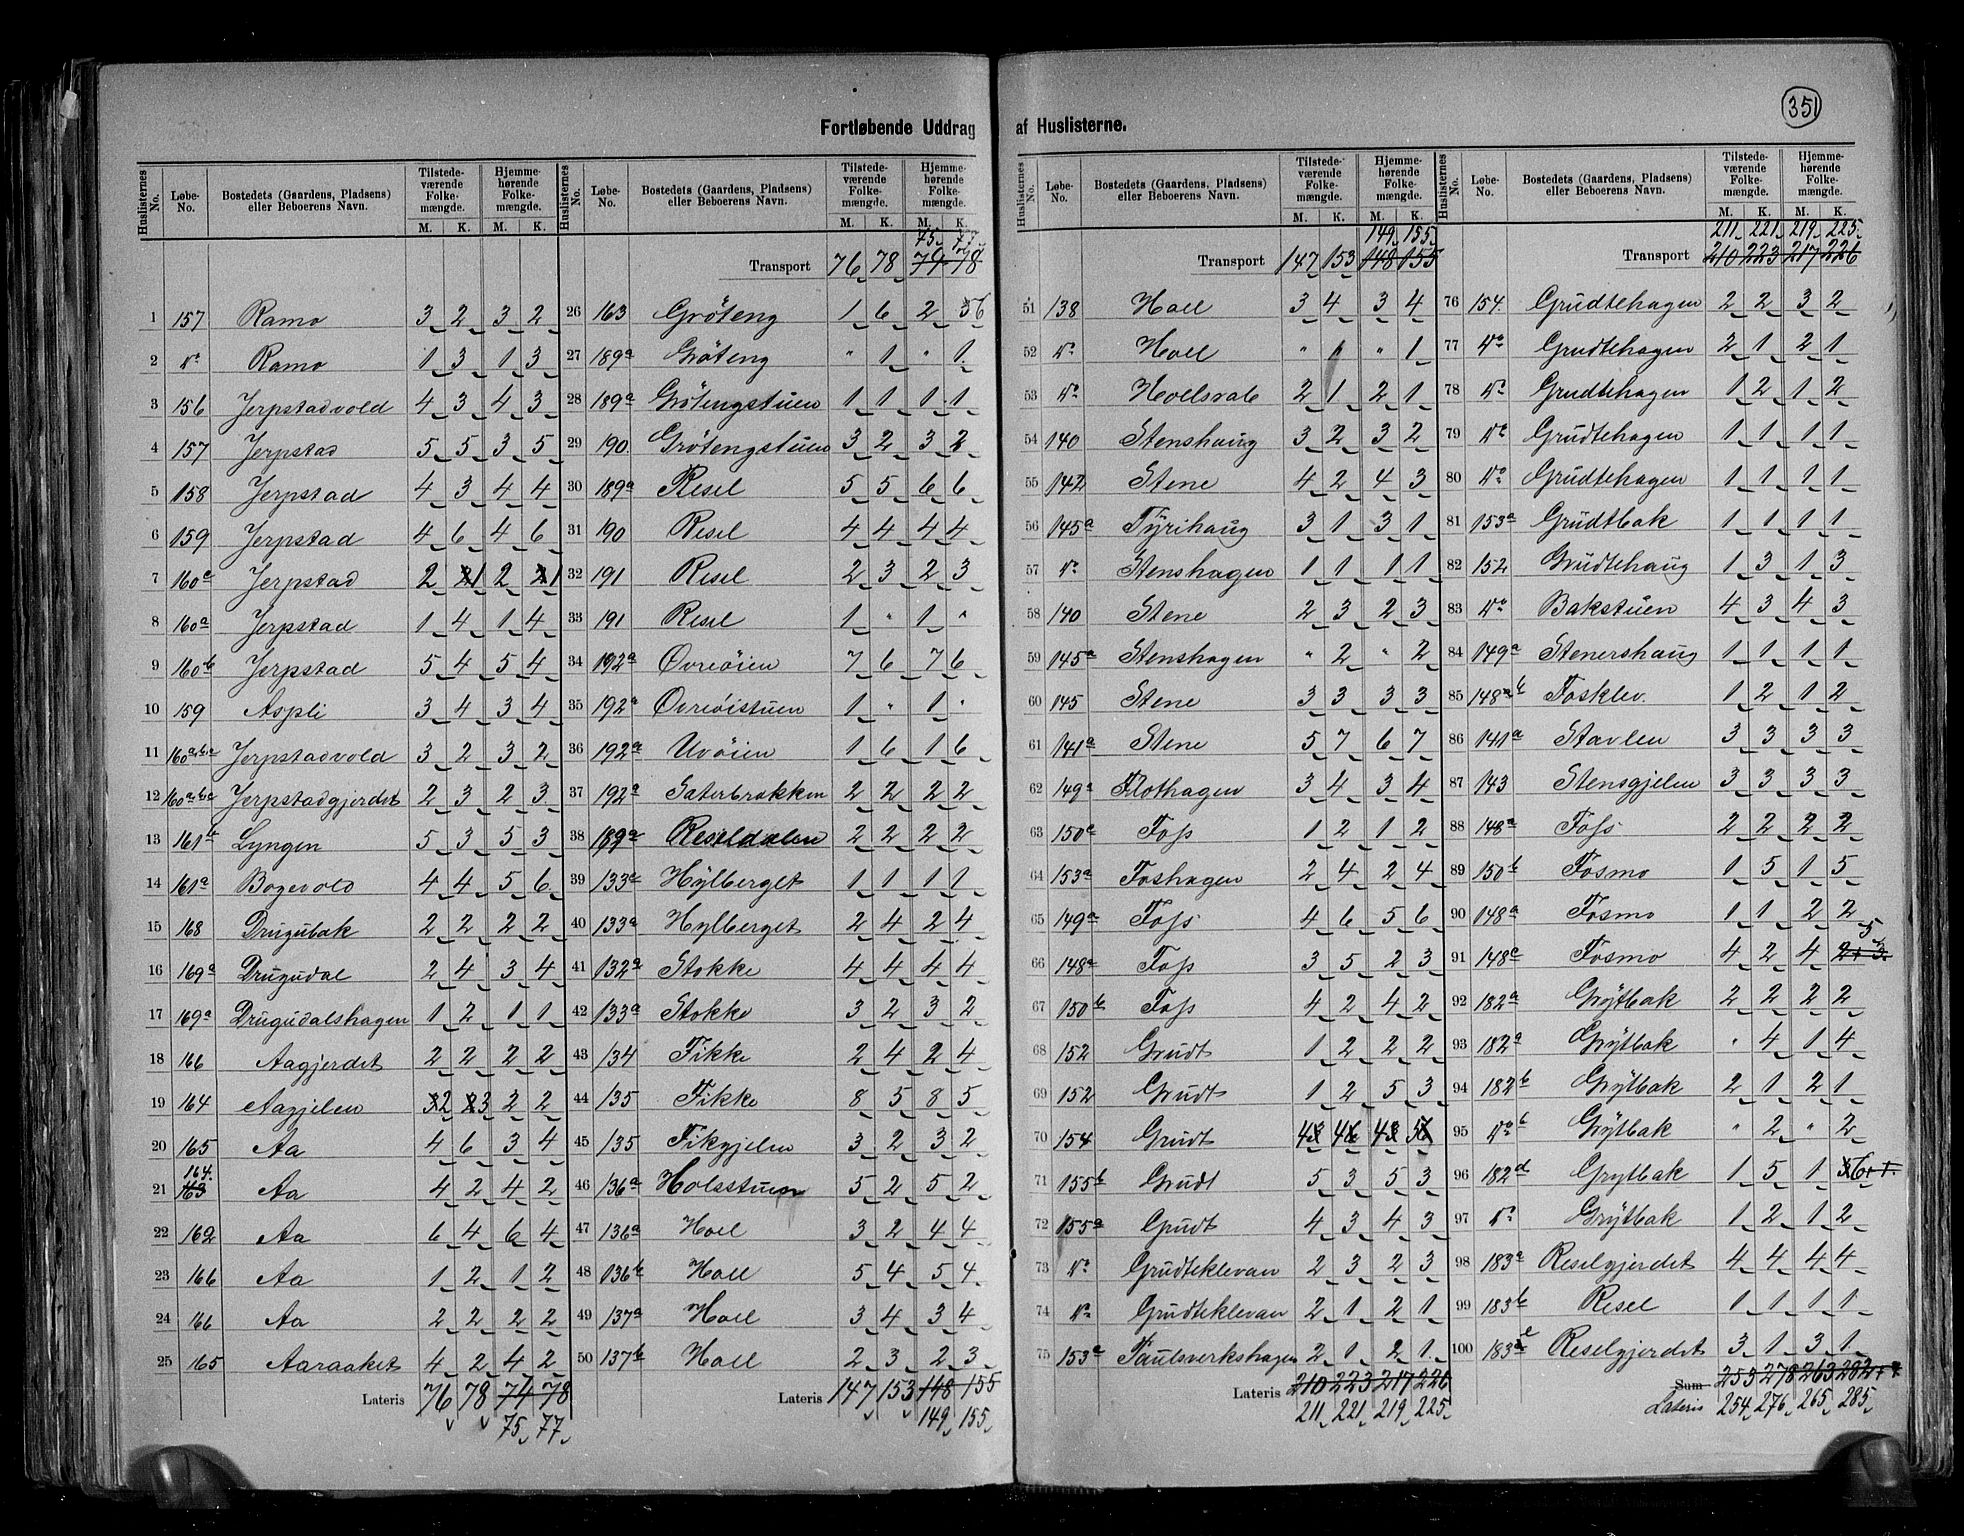 351
Fortløbende Uddrag af Huslisterne.
Huslisternes No. | Løbe-No. | Bostedets (Gaardens, Pladsens) eller Beboerens Navn. | Tilstedeværende Folkemængde. M. K. | Hjemmehørende Folkemængde. M. K.
1 157 Ramo 3 2 3 2
2 Do Ramo 1 3 1 3
3 156 Jerpstadvold 4 3 4 3
4 157 Jerpstad 5 5 3 5
5 158 Jerpstad 4 3 4 4
6 159 Jerpstad 4 6 4 6
7 160a Jerpstad 2 1 2 1
8 160a Jerpstad 1 4 1 4
9 160b Jerpstad 5 4 5 4
10 159 Aspli 3 4 3 4
11 160a,b,a Jerpstadvold 3 2 3 2
12 160a,b,a Jerpstadgjerdet 2 3 2 3
13 161b Lyngen 5 3 5 3
14 161a Bogevold 4 4 5 6
15 168 Drugubak 2 2 2 2
16 169a Drugudal 2 4 3 4
17 169a Drugudalshagen 1 2 1 1
18 166 Aagjerdet 2 2 2 2
19 164 Aagjelen 2 3 2 2
20 165 Aa 4 6 3 4
21 164. 163 Aa 4 2 4 2
22 162 Aa 6 4 6 4
23 166 Aa 1 2 1 2
24 166 Aa 2 2 2 2
25 165 Aaraaket 4 2 4 2
Lateris 76 78 74 78
75 77
75 77
Transport 76 78 74 78
26 163 Gröteng 1 6 2 6
27 189a Gröteng " 1 " 1
28 189a Grötengstuen 1 1 1 1
29 190. Grötengstuen 3 2 3 2
30 189a Resel 5 5 6 6
31 190 Resel 4 4 4 4
32 191 Resel 2 3 2 3
33 191 Resel 1 " 1 "
34 192a Ovreöien 7 6 7 6
35 192a Ovreöistuen 1 " 1 "
36 192a Uvöien 1 6 1 6
37 192a Saterbrakken 2 2 2 2
38 189a Reseldalen 2 2 2 2
39 133a Hylberget 1 1 1 1
40 133a Hylberget 2 4 2 4
41 132a Stokke 4 4 4 4
42 133a Stokke 3 2 3 2
43 134 Fikke 2 4 2 4
44 135 Fikke 8 5 8 5
45 135 Fikgjelen 3 2 3 2
46 136a Holsstuen 5 2 5 2
47 136a Hoel 3 2 4 4
48 136b Hoel 5 4 5 4
49 137a Hoel 3 4 3 4
50 137b Hoel 2 3 2 3
Lateris 147 153 148 155
149 155
149 155
Transport 147 153 148 155
51 138 Hoel 3 4 3 4
52 Do Hoel " 1 " 1
53 Do Hoelsvale 2 1 2 1
54 140 Stenshaug 3 2 3 2
55 142 Stene 4 2 4 3
56 145a Tyrihaug 3 1 3 1
57 Do Stenshagen 1 1 1 1
58 140 Stene 2 3 2 3
59 145a Stenshagen " 2 " 2
60 145 Stene 3 3 3 3
61 141a Stene 5 7 6 7
62 149a Flothagen 3 4 3 4
63 150a Foss 1 2 1 2
64 153a Foshagen 2 4 2 4
65 149a Foss 4 6 5 6
66 148a Foss 3 5 2 3
67 150b Foss 4 2 4 2
68 152 Grudt 1 2 2 2
69 152 Grudt 1 2 5 3
70 154 Grudt 4 4 4 5
71 155b Grudt 5 3 5 3
72 155a Grudt 4 3 4 3
73 Do Grudteklevan 2 3 2 3
74 Do Grudteklevan 2 1 2 1
75 153a Paulsverkshagen 2 1 2 1
Lateris 210 223 217 226
211 221 219 225
211 221 219 225
Transport 210 223 217 226
76 154. Grudtehagen 2 2 3 2
77 Do Grudtehagen 2 1 2 1
78 Do Grudtehagen 1 2 1 2
79 Do Grudtehagen 1 1 1 1
80 Do Grudtehagen 1 1 1 1
81 153a Grudtbak 1 1 1 1
82 152 Grudtehaug 1 3 1 3
83 Do Bakstuen 4 3 4 3
84 149a Stenershaug 1 1 1 1
85 148a b Fosklev. 1 2 1 2
86 141a Stavlen 3 3 3 3
87 143 Stensgjelen 3 3 3 3
88 148a Foss 2 2 2 2
89 150b Fosmo 1 5 1 5
90 148a Fosmo 1 1 2 2
91 148a Fosmo 4 2 4 2+3 5
92 182a Grytbak 2 2 2 2
93 182a Grytbak " 4 1 4
94 182b Grytbak 2 1 2 1
95 Do b Grytbak " 2 " 2
96 182d Grytbak 1 5 1 6
97 Do Grytbak 1 2 1 2
98 183a Reselgjerdet 4 4 4 4
99 183b Resel 1 1 1 1
100 183 Reselgjerdet 3 1 3 1
Sum 253 278 263 282
Lateris 254 276 265 285